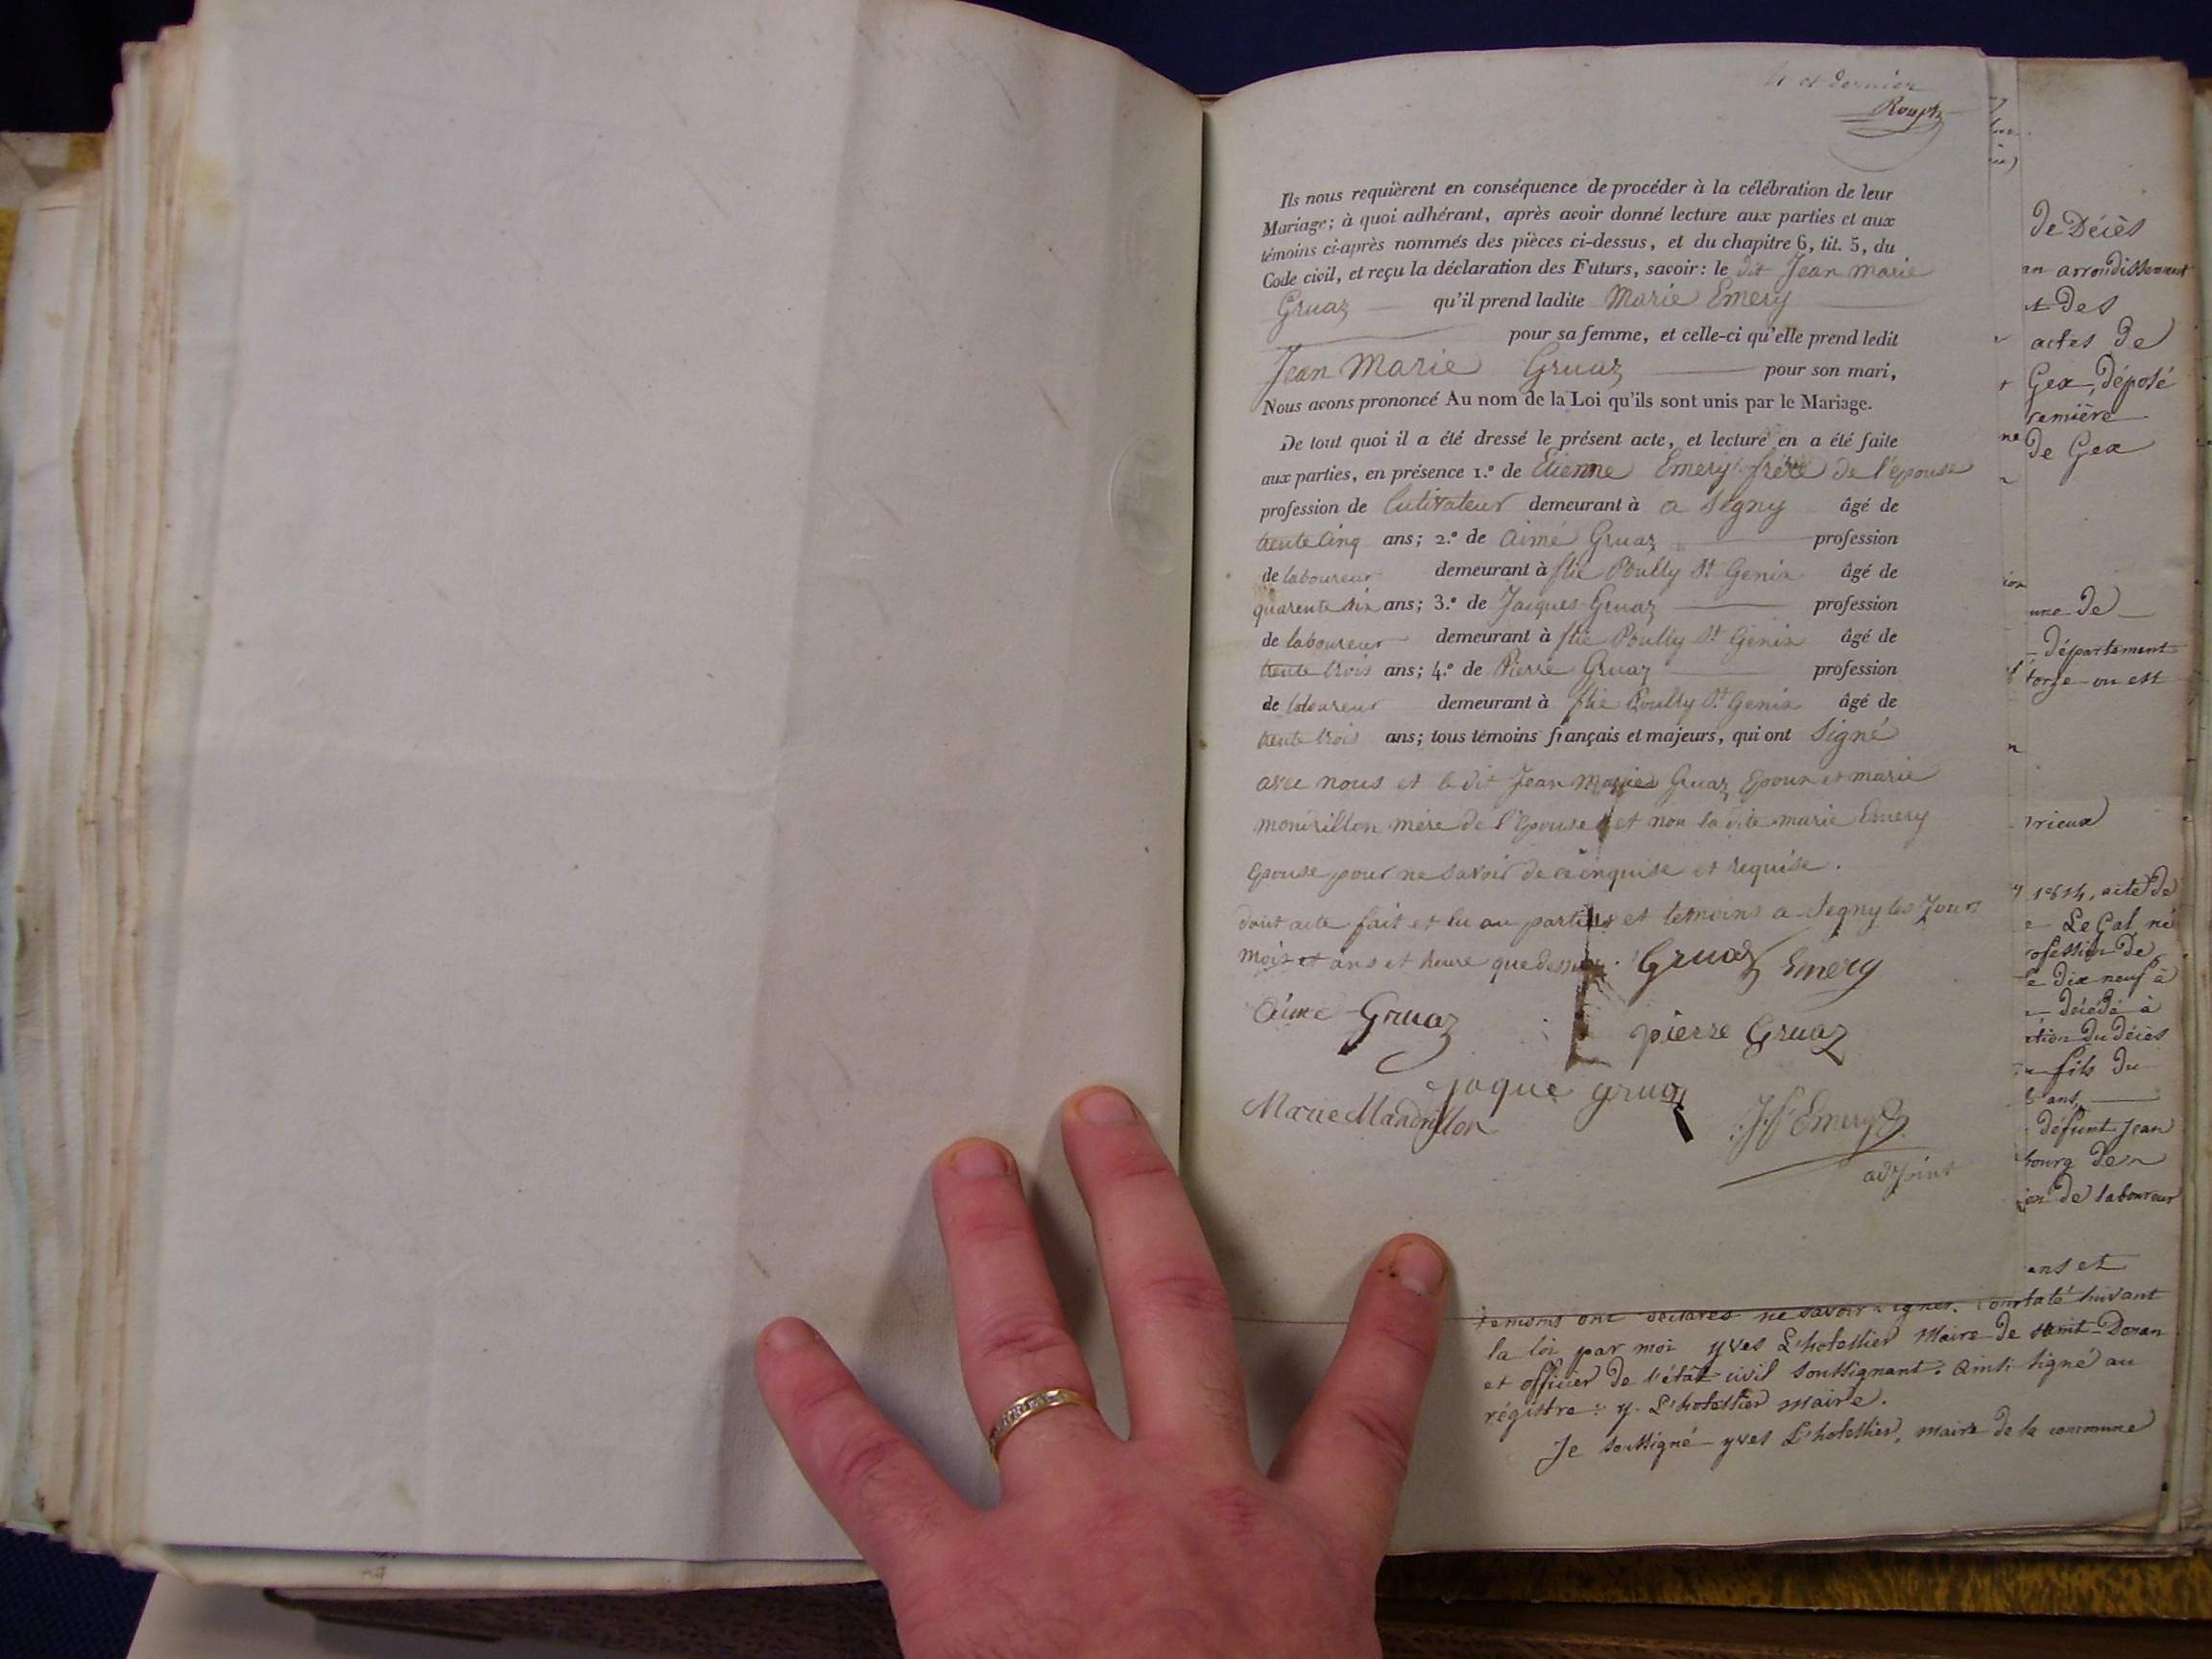 4 et dernier
Rouph
Ils nous requièrent en conséquence de procéder à la célébration de leur
Mariage; à quoi adhérant, après avoir donné lecture aux parties et aux
témoins ci-après nommés des pièces ci-dessus, et du chapitre 6, tit. 5, du
Code civil, et reçu la déclaration des Futurs, savoir: le dit Jean Marie
Gruaz qu'il prend ladite Marie Emery
pour sa femme, et celle-ci qu'elle prend ledit
Jean Marie Gruaz pour son mari,
Nous avons prononcé Au nom de la Loi qu'ils sont unis par le Mariage.
De tout quoi il a été dressé le présent acte, et lecture en a été faite
aux parties, en présence 1.º de Etienne Emery frère de l'epouse
profession de Cultivateur demeurant à a Segny âgé de
trente Cinq ans; 2.º de Aimé Gruaz profession
de laboureur demeurant à Pouilly St Genix âgé de
quarente six ans; 3.º de Jacques Gruaz profession
de laboureur demeurant à Pouilly St Genix âgé de
trente trois ans; 4.º de Pierre Gruaz profession
de laboureur demeurant à Pouilly St Genix âgé de
trente trois ans; tous témoins français et majeurs, qui ont Signé
avec nous et le dit Jean Marie Gruaz Epoux et marie
mondrillon mère de l'Epouse et non la dite marie Emery
Epouse pour ne savoir de ce enquise et requise.
dont acte fait et lu au parties et temoins a Segny les Jour
mois et ans et heure que dessus. Gruaz Emery
Aimé Gruaz
pierre Gruaz
jaque gruaz
Marie Mandrillon
Emery
adjoint
de Décès
an arrondissement
et des
actes de
Gex, déposé
remière
de Gex
une de
département
forge ou est
rieux
1814, acte de
Le Gal né
rofession de
le dix neuf à
décédé à
ration du décès
fils du
ans,
défunt Jean
bourg de
ion de laboureur
ans et
temoins ont déclarés ne savoir signer. Constaté suivant
la loi par moi yves L'hotellier Maire de saint-Donan
et officier de l'état civil soussignant. Ainsi signé au
régistre: y. L'hotellier maire.
Je soussigné yves L'hotellier, maire de la commune